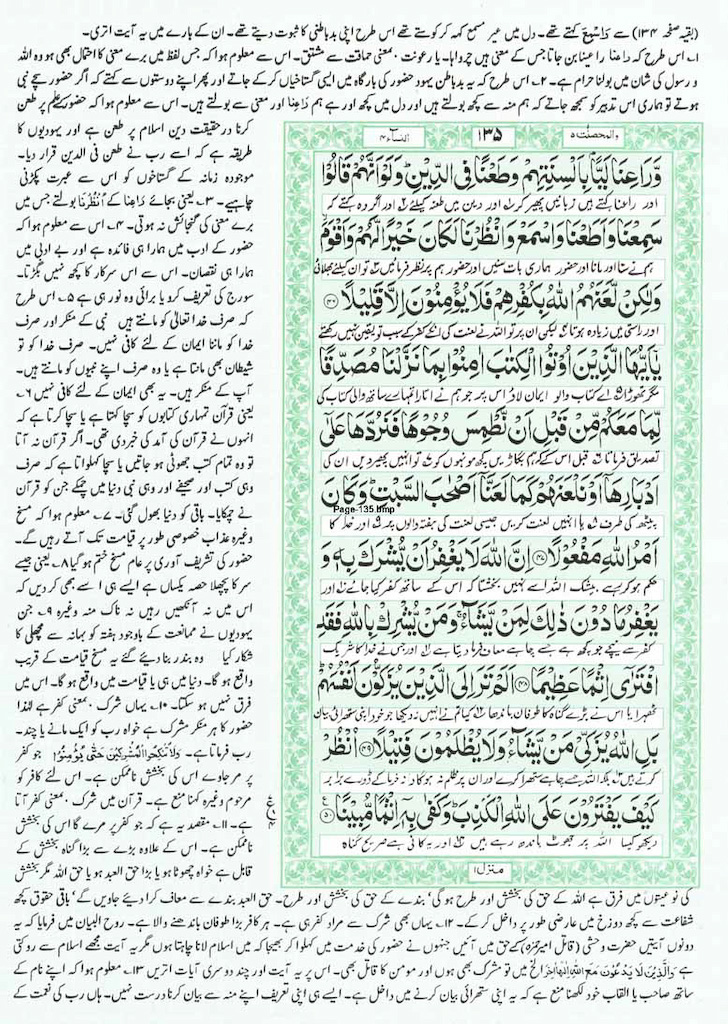 (بقیہ صفحہ ۱۳۴) سے رَاسْمَع کہتے تھے۔ دل میں غیر مسمع کہہ کر کوستے تھے اس طرح اپنی بدباطنی کا ثبوت دیتے تھے۔ ان کے بارے میں یہ آیت اتری۔
۱۔ اس طرح کہ رَاعِنَا راعینا بن جاتا جس کے معنی ہیں چرواہا۔ یا رعونت بمعنی حماقت سے مشتق۔ اس سے معلوم ہوا کہ جس لفظ میں برے معنی کا احتمال بھی ہو وہ اللہ
و رسول کی شان میں بولنا حرام ہے۔ ۲۔ اس طرح کہ یہ بدباطن یہود حضور کی بارگاہ میں ایسی گستاخیاں کر کے جاتے اور پھر اپنے دوستوں سے کہتے کہ اگر حضور سچے نبی
ہوتے تو ہماری اس تدبیر کو سمجھ جاتے کہ ہم منہ سے کچھ بولتے ہیں اور دل میں کچھ اور ہے ہم رَاعِنَا اور معنی سے بولتے ہیں۔ اس سے معلوم ہوا کہ حضور پر طعن
والمحصنت ۵
۱۳۵
النساء ۴
وَّرَاعِنَا لَيًّۢا بِاَلْسِنَتِهِمْ وَطَعْنًا فِي الدِّيْنِ ؕ وَلَوْ اَنَّهُمْ قَالُوْا
اور راعنا کہتے ہیں زبانیں پھیر کر اور دین میں طعنہ کیلئے اور اگر وہ کہتے کہ
سَمِعْنَا وَاَطَعْنَا وَاسْمَعْ وَانْظُرْنَا لَكَانَ خَيْرًا لَّهُمْ وَاَقْوَمَ
ہم نے سنا اور مانا اور حضور ہماری بات سنیں اور حضور ہم پر نظر فرمائیں تو ان کیلئے بھلائی
وَلٰكِنْ لَّعَنَهُمُ اللّٰهُ بِكُفْرِهِمْ فَلَا يُؤْمِنُوْنَ اِلَّا قَلِيْلًا ۝۴۶
اور راستی میں زیادہ ہوتا لیکن ان پر تو اللہ نے لعنت کی انکے کفر کے سبب تو یقین نہیں رکھتے
يٰۤاَيُّهَا الَّذِيْنَ اُوْتُوا الْكِتٰبَ اٰمِنُوْا بِمَا نَزَّلْنَا مُصَدِّقًا
مگر تھوڑا اے کتاب والو ایمان لاؤ اس پر جو ہم نے اتارا تمہارے ساتھ والی کتاب کی
لِّمَا مَعَكُمْ مِّنْ قَبْلِ اَنْ نَّطْمِسَ وُجُوْهًا فَنَرُدَّهَا عَلٰۤى
تصدیق فرماتا قبل اس کے کہ ہم بگاڑ دیں کچھ مونہوں کو تو انہیں پھیر دیں ان کی
اَدْبَارِهَاۤ اَوْ نَلْعَنَهُمْ كَمَا لَعَنَّاۤ اَصْحٰبَ السَّبْتِ ؕ وَكَانَ
Page-135.bmp
پیٹھ کی طرف یا انہیں لعنت کریں جیسی لعنت کی ہفتہ والوں پر اور خدا کا
اَمْرُ اللّٰهِ مَفْعُوْلًا ۝۴۷ اِنَّ اللّٰهَ لَا يَغْفِرُ اَنْ يُّشْرَكَ بِهٖ وَ
حکم ہو کر رہے بیشک اللہ اسے نہیں بخشتا کہ اس کے ساتھ کفر کیا جائے اور
يَغْفِرُ مَا دُوْنَ ذٰلِكَ لِمَنْ يَّشَآءُ ۚ وَمَنْ يُّشْرِكْ بِاللّٰهِ فَقَدِ
کفر سے نیچے جو کچھ ہے جسے چاہے معاف فرما دیتا ہے اور جس نے خدا کا شریک
افْتَرٰۤى اِثْمًا عَظِيْمًا ۝۴۸ اَلَمْ تَرَ اِلَى الَّذِيْنَ يُزَكُّوْنَ اَنْفُسَهُمْ ؕ
ٹھہرایا اس نے بڑے گناہ کا طوفان باندھا کیا تم نے انہیں نہ دیکھا جو خود اپنی ستھرائی بیان
بَلِ اللّٰهُ يُزَكِّيْ مَنْ يَّشَآءُ وَلَا يُظْلَمُوْنَ فَتِيْلًا ۝۴۹ اُنْظُرْ
کرتے ہیں بلکہ اللہ جسے چاہے ستھرا کرے اور ان پر ظلم نہ ہوگا دانہ خرما کے ڈورے برابر
كَيْفَ يَفْتَرُوْنَ عَلَى اللّٰهِ الْكَذِبَ ؕ وَكَفٰى بِهٖۤ اِثْمًا مُّبِيْنًا ۝۵۰
دیکھو کیسا اللہ پر جھوٹ باندھ رہے ہیں اور یہ کافی ہے صریح گناہ
منزل ۱
کرنا درحقیقت دین اسلام پر طعن ہے اور یہودیوں کا
طریقہ ہے کہ اسے رب نے طعن فی الدین قرار دیا۔
موجودہ زمانہ کے گستاخوں کو اس سے عبرت پکڑنی
چاہیے۔ ۳۔ یعنی بجائے رَاعِنَا کے اُنْظُرْنَا بولتے جس میں
برے معنی کی گنجائش نہ ہوتی۔ ۴۔ اس سے معلوم ہوا کہ
حضور کے ادب میں ہمارا ہی فائدہ ہے اور بے ادبی میں
ہمارا ہی نقصان۔ اس سے اس سرکار کا کچھ نہیں بگڑتا۔
سورج کی تعریف کرو یا برائی وہ نور ہی ہے ۵۔ اس طرح
کہ صرف خدا تعالیٰ کو مانتے ہیں نبی کے منکر اور صرف
خدا کو ماننا ایمان کے لئے کافی نہیں۔ صرف خدا کو تو
شیطان بھی مانتا ہے یا وہ صرف اپنے نبیوں کو مانتے ہیں۔
آپ کے منکر ہیں۔ یہ بھی ایمان کے لئے کافی نہیں ۶۔
یعنی قرآن تمہاری کتابوں کو سچا کہتا ہے یا سچا کرتا ہے کہ
انہوں نے قرآن کی آمد کی خبر دی تھی۔ اگر قرآن نہ آتا
تو وہ تمام کتب جھوٹی ہو جاتیں یا سچا کہلواتا ہے کہ صرف
وہی کتب اور صحیفے اور وہی نبی دنیا میں چمکے جن کو قرآن
نے چمکایا۔ باقی کو دنیا بھول گئی۔ ۷۔ معلوم ہوا کہ مسخ
وغیرہ عذاب خصوصی طور پر قیامت تک آتے رہیں گے۔
حضور کی تشریف آوری پر عام مسخ ختم ہو گیا ۸۔ یعنی جیسے
سر کا پچھلا حصہ یکساں ہے ایسے ہی اسے بھی کر دیں کہ
اس میں نہ آنکھیں رہیں نہ ناک منہ وغیرہ ۹۔ جن
یہودیوں نے ممانعت کے باوجود ہفتہ کو بہانہ سے مچھلی کا
شکار کیا وہ بندر بنا دیئے گئے یہ مسخ قیامت کے قریب
واقع ہو گا۔ دنیا میں ہی یا قیامت میں واقع ہو گا۔ اس میں
فرق نہیں ہو سکتا۔ ۱۰۔ یہاں شرک بمعنی کفر ہے لہٰذا
حضور کا ہر منکر مشرک ہے خواہ رب کو ایک مانے یا چند۔
رب فرماتا ہے۔ وَلَا تُنْكِحُوا الْمُشْرِكِيْنَ حَتّٰى يُؤْمِنُوْا جو کفر
پر مر جاوے اس کی بخشش ناممکن ہے۔ اس لئے کافر کو
مرحوم وغیرہ کہنا منع ہے۔ قرآن میں شرک بمعنی کفر آتا
ہے۔ ۱۱۔ مقصد یہ ہے کہ جو کفر پر مرے گا اس کی بخشش
ناممکن ہے۔ اس کے علاوہ بڑے سے بڑا گناہ بخشش کے
قابل ہے خواہ چھوٹا ہو یا بڑا حق العبد ہو یا حق اللہ مگر بخشش
کی نوعیتوں میں فرق ہے اللہ کے حق کی بخشش اور طرح ہو گی، بندے کے حق کی بخشش اور طرح۔ حق العبد بندے سے معاف کرا دیئے جاویں گے، باقی حقوق کچھ
شفاعت سے کچھ دوزخ میں عارضی طور پر داخل کر کے۔ ۱۲۔ یہاں بھی شرک سے مراد کفر ہی ہے۔ ہر کافر بڑا طوفان باندھنے والا ہے۔ روح البیان میں فرمایا کہ یہ
دونوں آیتیں حضرت وحشی (قاتل امیر حمزہ) کے حق میں آئیں جنہوں نے حضور کی خدمت میں کہلوا کر بھیجا کہ میں اسلام لانا چاہتا ہوں مگر یہ آیت مجھے اسلام سے روکتی
ہے وَالَّذِيْنَ لَا يَدْعُوْنَ مَعَ اللّٰهِ اِلٰهًا اٰخَرَ الخ میں تو مشرک بھی ہوں اور مومن کا قاتل بھی۔ اس پر یہ آیت اور چند دوسری آیات اتریں ۱۳۔ معلوم ہوا کہ اپنے نام کے
ساتھ صاحب یا القاب خود لکھنا منع ہے کہ یہ اپنی ستھرائی بیان کرنے میں داخل ہے۔ ایسے ہی اپنی تعریف اپنے منہ سے بیان کرنا درست نہیں۔ ہاں رب کی نعمت کے